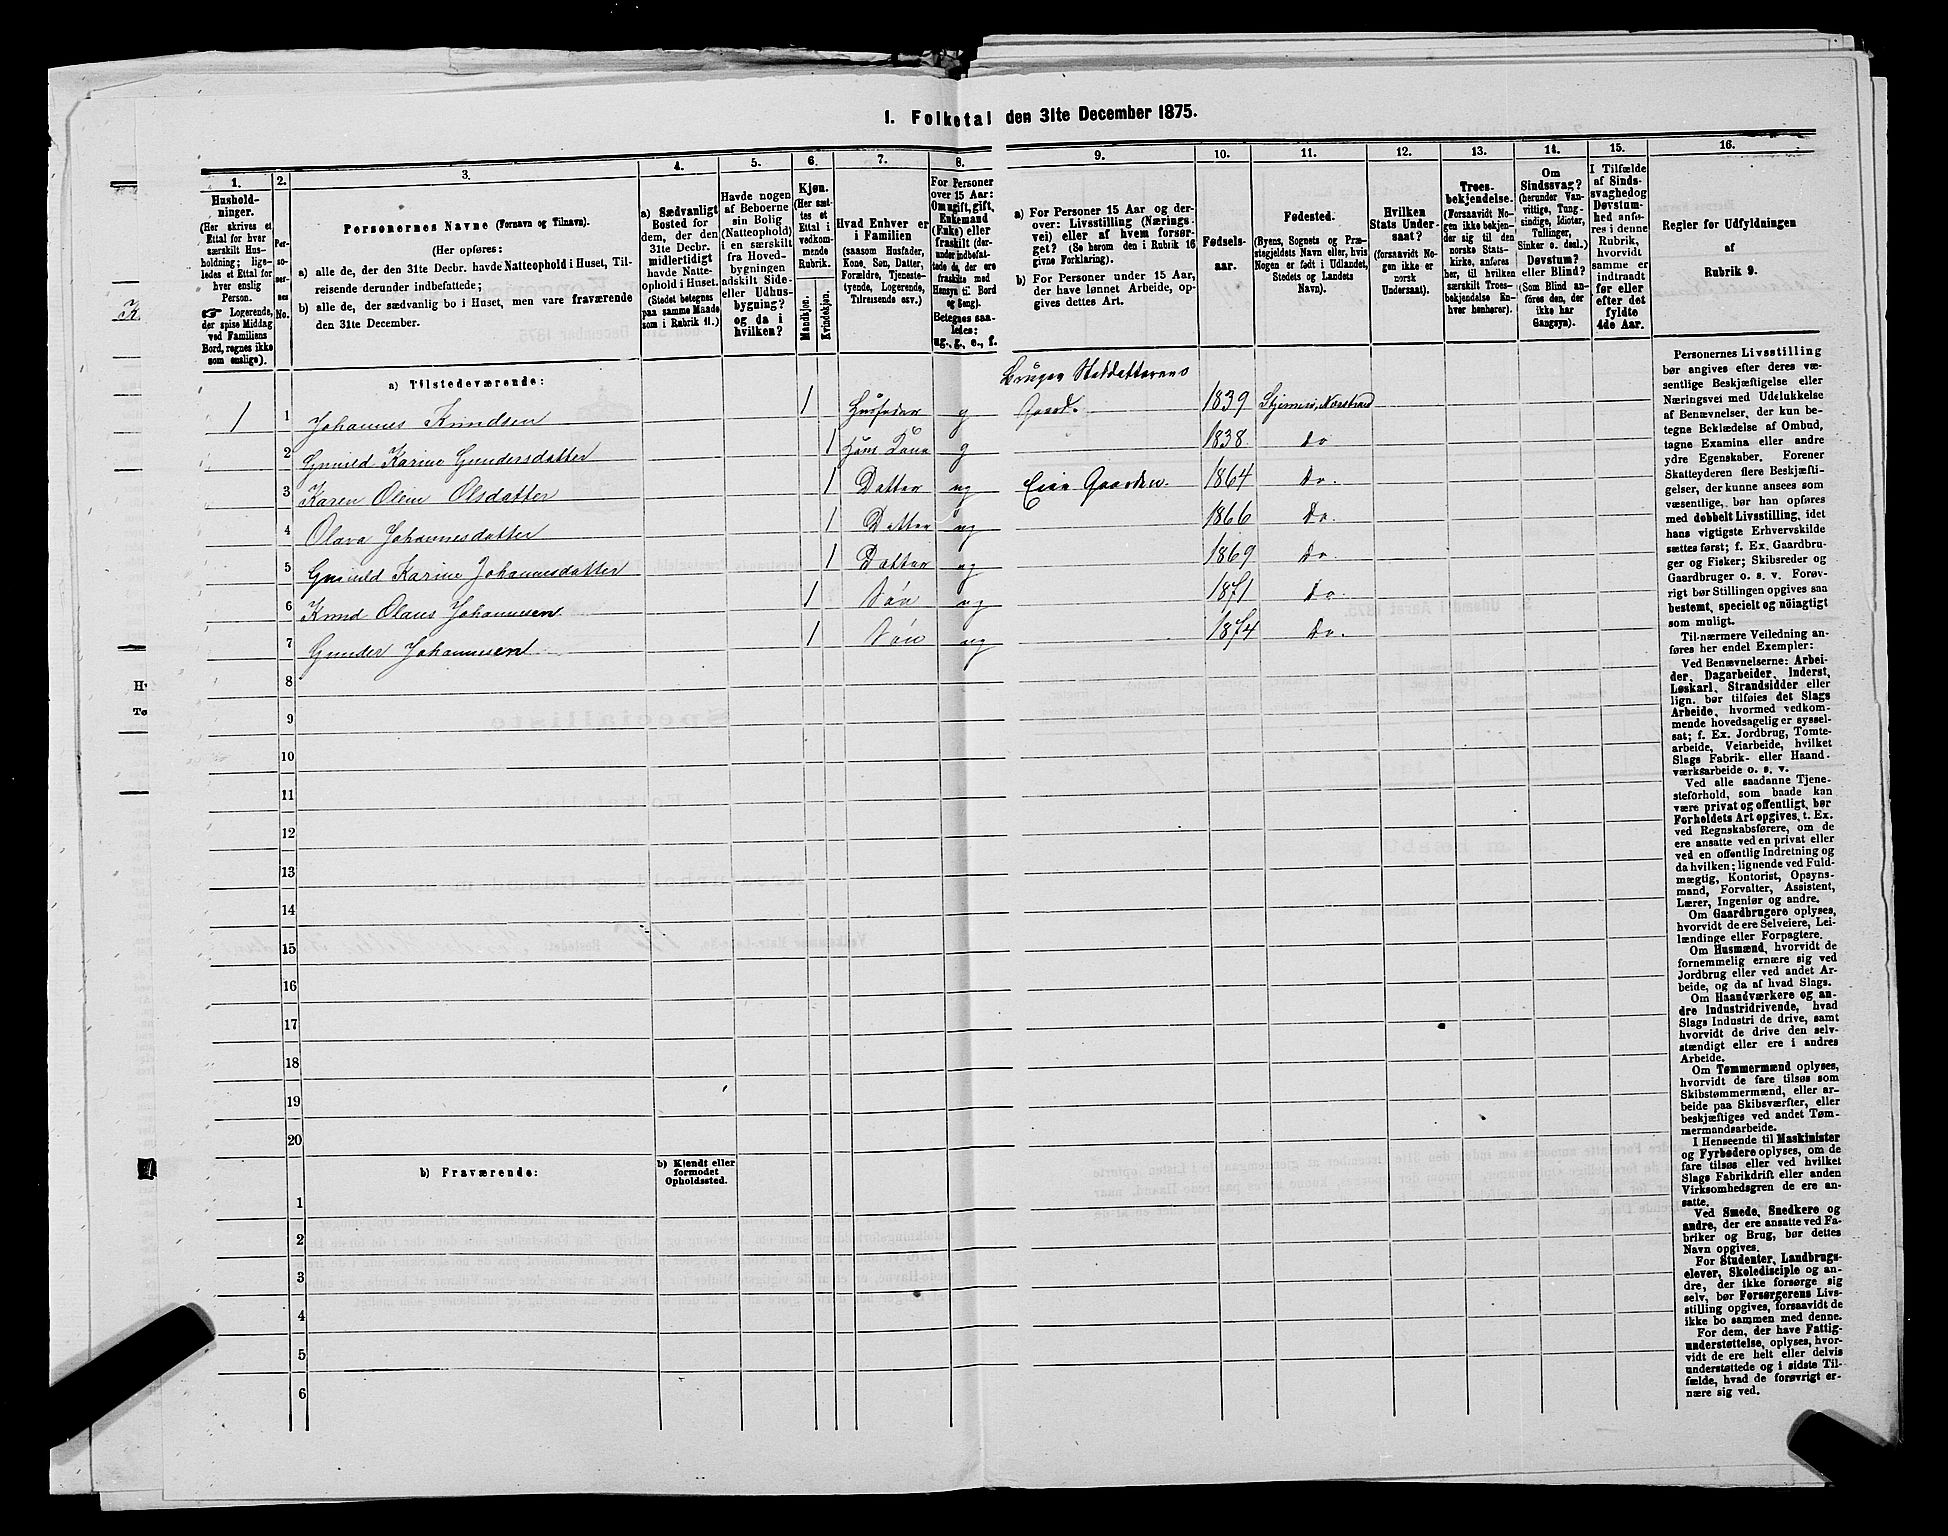 I. Folketal den 31te December 1875.
1.
2.
3.
4.
5.
6.
7.
8.
9.
10.
11.
12.
13.
14.
15.
16.
Hushold-
ninger.
(Her skrives et
Ettal for hver
særskilt Hus-
holdning; lige-
ledes et Ettal for
hver enslig
Person.
☞ Logerende,
der spise Middag
ved Familiens
Bord, regnes ikke
som enslige).
Per-
so-
ner-
nes
No.
Personernes Navne (Fornavn og Tilnavn).
(Her opføres:
a) alle de, der den 31te Decbr. havde Natteophold i Huset, Til-
reisende derunder indbefattede;
b) alle de, der sædvanlig bo i Huset, men vare fraværende
den 31te December.
a) Sædvanligt
Bosted for
dem, der den
31te Decbr.
midlertidigt
havde Natte-
ophold i Huset.
(Stedet betegnes
paa samme Maade
som i Rubrik 11.)
Havde nogen
af Beboerne
sin Bolig
(Natteophold)
i en særskilt
fra Hoved-
bygningen
adskilt Side-
eller Udhus-
bygning?
og da i
hvilken?
Kjøn.
(Her sæt-
tes et
Ettal i
vedkom-
mende
Rubrik.
Mandkjøn.
Kvindekjøn.
Hvad Enhver er
i Familien
(saasom Husfader,
Kone, Søn, Datter,
Forældre, Tjeneste-
tyende, Logerende,
Tilreisende osv.)
For Personer
over 15 Aar:
Om ugift, gift,
Enkemand
(Enke) eller
fraskilt (der-
under indbefat-
tede de, der ere
fraskilte med
Hensyn til Bord
og Seng).
Betegnes saa-
ledes:
ug., g., e., f.
a) For Personer 15 Aar og der-
over: Livsstilling (Nærings-
vei) eller af hvem forsør-
get? (Se herom den i Rubrik 16
givne Forklaring).
b) For Personer under 15 Aar,
der have lønnet Arbeide, op-
gives dettes Art.
Fødsels-
aar.
Fødested.
(Byens, Sognets og Præ-
stegjeldets Navn eller, hvis
Nogen er født i Udlandet,
Stedets og Landets
Navn).
Hvilken
Stats Under-
saat?
(forsaavidt No-
gen ikke er
norsk
Undersaat).
Troes-
bekjendelse.
(Forsaavidt No-
gen ikke bekjen-
der sig til den
norske Stats-
kirke, anføres
her, til hvilken
særskilt Troes-
bekjendelse En-
hver henhører).
Om
Sindssvag?
(herunder Van-
vittige, Tung-
sindige, Idioter,
Tullinger,
Sinker o. desl.)
Døvstum?
eller Blind?
(Som Blind an-
føres den, der
ikke har
Gangsyn).
I Tilfælde
af Sinds-
svaghed og
Døvstum-
hed anfø-
res i denne
Rubrik,
hvorvidt
samme er
indtraadt
før eller
efter det
fyldte
4de Aar.
Regler for Udfyldningen
af
Rubrik 9.
a) Tilstedeværende:
Bruger Steddatterens
1 1 Johannes Knudsen 1 Husfader g Gaard. 1839
2 Gunild Karine Gundersdatter 1 Hans Kone g 1838 Do
3 Karen Oline Olsdatter 1 Datter ug Eier Gaarden 1864 Do.
4 Olava Johannesdatter 1 Datter ug 1866 Do.
5 Gunild Karine Johannesdatter 1 Datter ug 1869 Do
6 Knud Olaus Johannesen 1 Søn ug 1871 Do.
7 Gunder Johannesen 1 Søn ug 1874 Do.
8
9
10
11
12
13
14
15
16
17
18
19
20
b) Fraværende:
b) Kjendt eller
formodet
Opholdssted.
1
2
3
4
5
6
Personernes Livsstilling
bør angives efter deres væ-
sentlige Beskjæftigelse eller
Næringsvei med Udelukkelse
af Benævnelser, der kun be-
tegne Beklædelse af Ombud,
tagne Examina eller andre
ydre Egenskaber. Forener
Skatteyderen flere Beskjæfti-
gelser, der kunne ansees som
væsentlige, bør han opføres
med dobbelt Livsstilling, idet
hans vigtigste Erhvervskilde
sættes først; f. Ex. Gaardbru-
ger og Fisker; Skibsreder og
Gaardbruger o. s. v. Forøv-
rigt bør Stillingen opgives saa
bestemt, specielt og nøiagtigt
som muligt.
Til nærmere Veiledning an-
føres her endel Exempler:
Ved Benævnelserne: Arbei-
der, Dagarbeider, Inderst,
Løskarl, Strandsidder eller
lign. bør tilføies det Slags
Arbeide, hvormed vedkom-
mende hovedsagelig er syssel-
sat; f. Ex. Jordbrug, Tomte-
arbeide, Veiarbeide, hvilket
Slags Fabrik- eller Haand-
værksarbeide o. s. v.
Ved alle saadanne Tjene-
steforhold, som baade kan
være privat og offentligt, bør
Forholdets Art opgives, t. Ex.
ved Regnskabsførere, om de
ere ansatte ved en privat eller
ved en offentlig Indretning og
da hvilken; lignende ved Fuld-
mægtig, Kontorist, Opsyns-
mand, Forvalter, Assistent,
Lærer, Ingeniør og andre.
Om Gaardbrugere oplyses,
hvorvidt de ere Selveiere, Lei-
lændinge eller Forpagtere.
Om Husmænd, hvorvidt de
fornemmelig ernære sig ved
Jordbrug eller ved andet Ar-
beide, og da af hvad Slags.
Om Haandværkere og an-
dre Industridrivende, hvad
Slags Industri de drive, samt
hvorvidt de drive den selv-
stændigt eller ere i andres
Arbeide.
Om Tømmermænd oplyses,
hvorvidt de fare tilsøs som
Skibstømmermænd, eller ar-
beide paa Skibsværfter, eller
beskjæftiges ved andet Tøm-
mermandsarbeide.
I Henseende til Maskinister
og Fyrbødere oplyses, om de
fare tilsøs eller ved hvilket
Slags Fabrikdrift eller anden
Virksomhedsgren de ere an-
satte.
Ved Smede, Snedkere og
andre, der ere ansatte ved Fa-
briker og Brug, bør dettes
Navn opgives.
For Studenter, Landbrugs-
elever, Skoledisciple og an-
dre, der ikke forsørge sig
selv, bør Forsørgerens Livs-
stilling opgives, forsaavidt de
ikke bo sammen med denne.
For dem, der have Fattig-
understøttelse, oplyses, hvor-
vidt de ere helt eller delvis
understøttede og i sidste Til-
fælde, hvad de forøvrigt er-
nære sig ved.